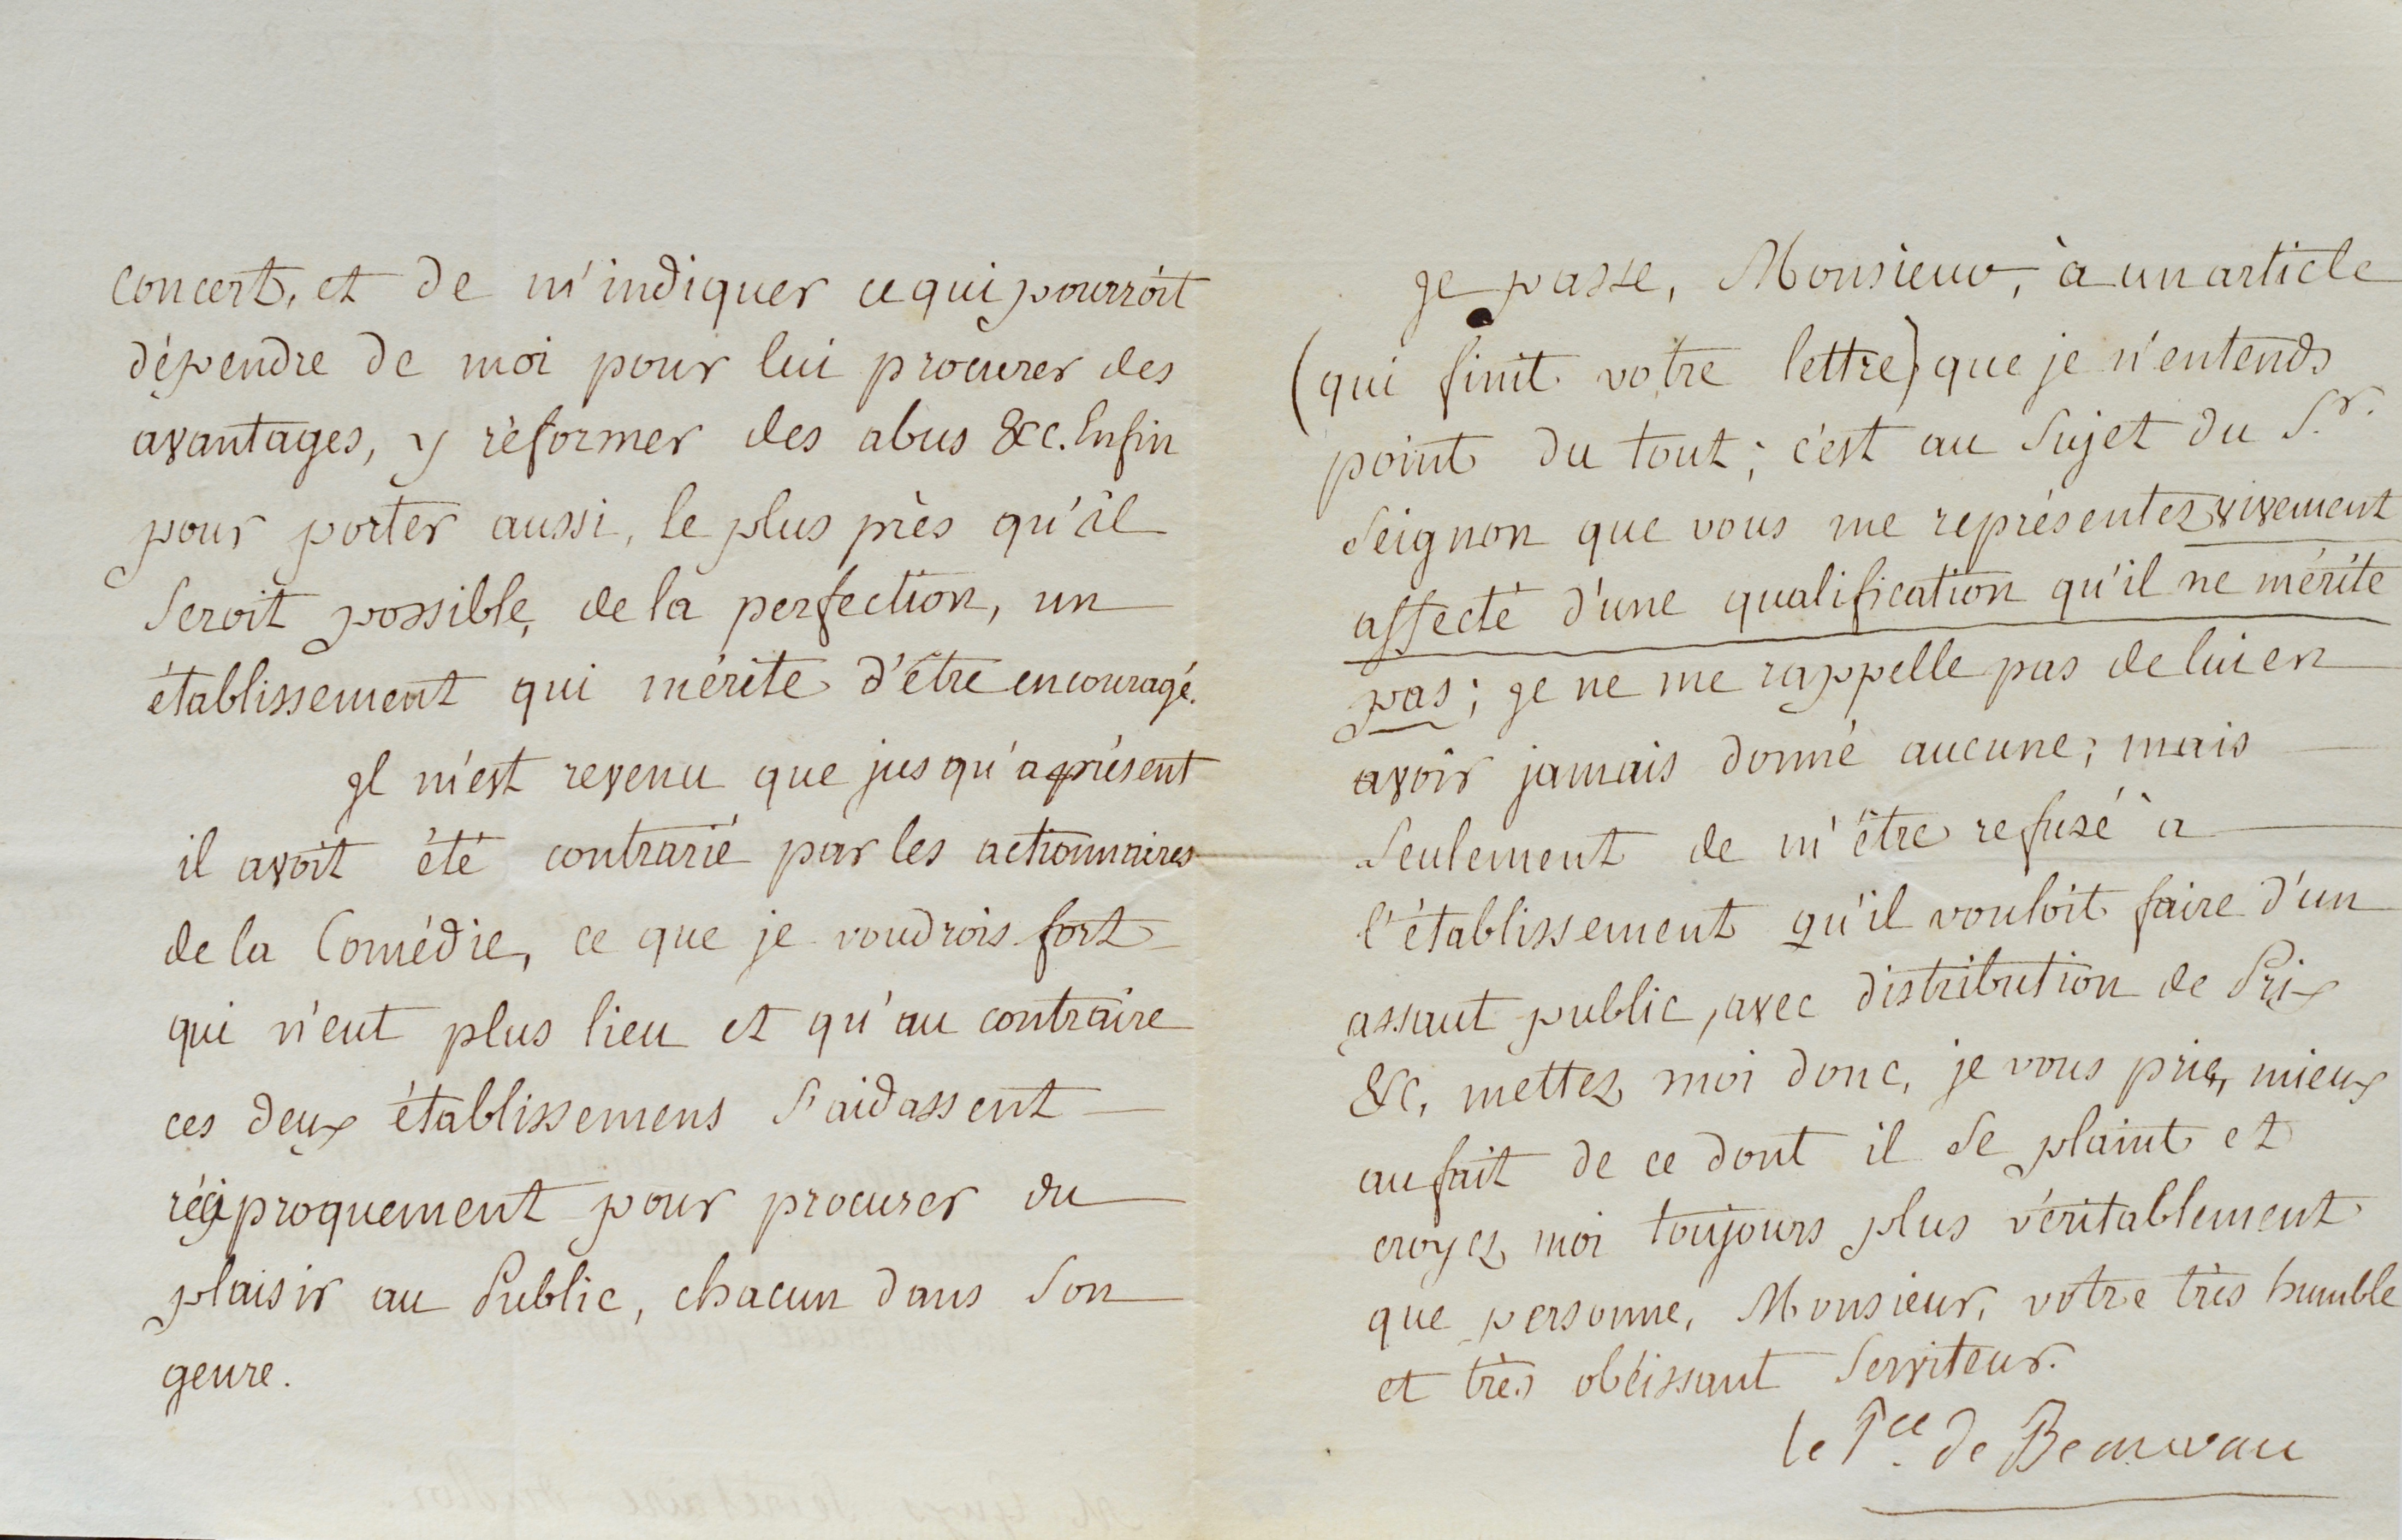 concert, et de m'indiquer ce qui pourroit
dépendre de moi pour lui procurer des
avantages, y réformer des abus &c. Enfin
pour porter aussi, le plus près qu'il
seroit possible, de la perfection, un
établissement qui mérite d'être encouragé.
Il m'est revenu que jusqu'aprésent
il avoit été contrarié par les actionnaires
de la Comédie, ce que je voudrois fort
qui n'eut plus lieu et qu'au contraire
ces deux établissemens s'aidassent
réciproquement pour procurer du
plaisir au Public, chacun dans son
genre.
Je passe, Monsieur, à un article
(qui finit votre lettre) que je n'entends
point du tout; c'est au sujet du Sr.
Seignon que vous me représentez vivement
affecté d'une qualification qu'il ne mérite
pas; je ne me rappelle pas de lui en
avoir jamais donné aucune; mais
seulement de m'être refusé à
l'établissement qu'il vouloit faire d'un
assaut public, avec distribution de Prix
&c, mettez moi donc, je vous prie, mieux
au fait de ce dont il se plaint et
croyez moi toujours plus véritablement
que personne, Monsieur, votre très humble
et très obéissant serviteur.
le Pce de Beauvau